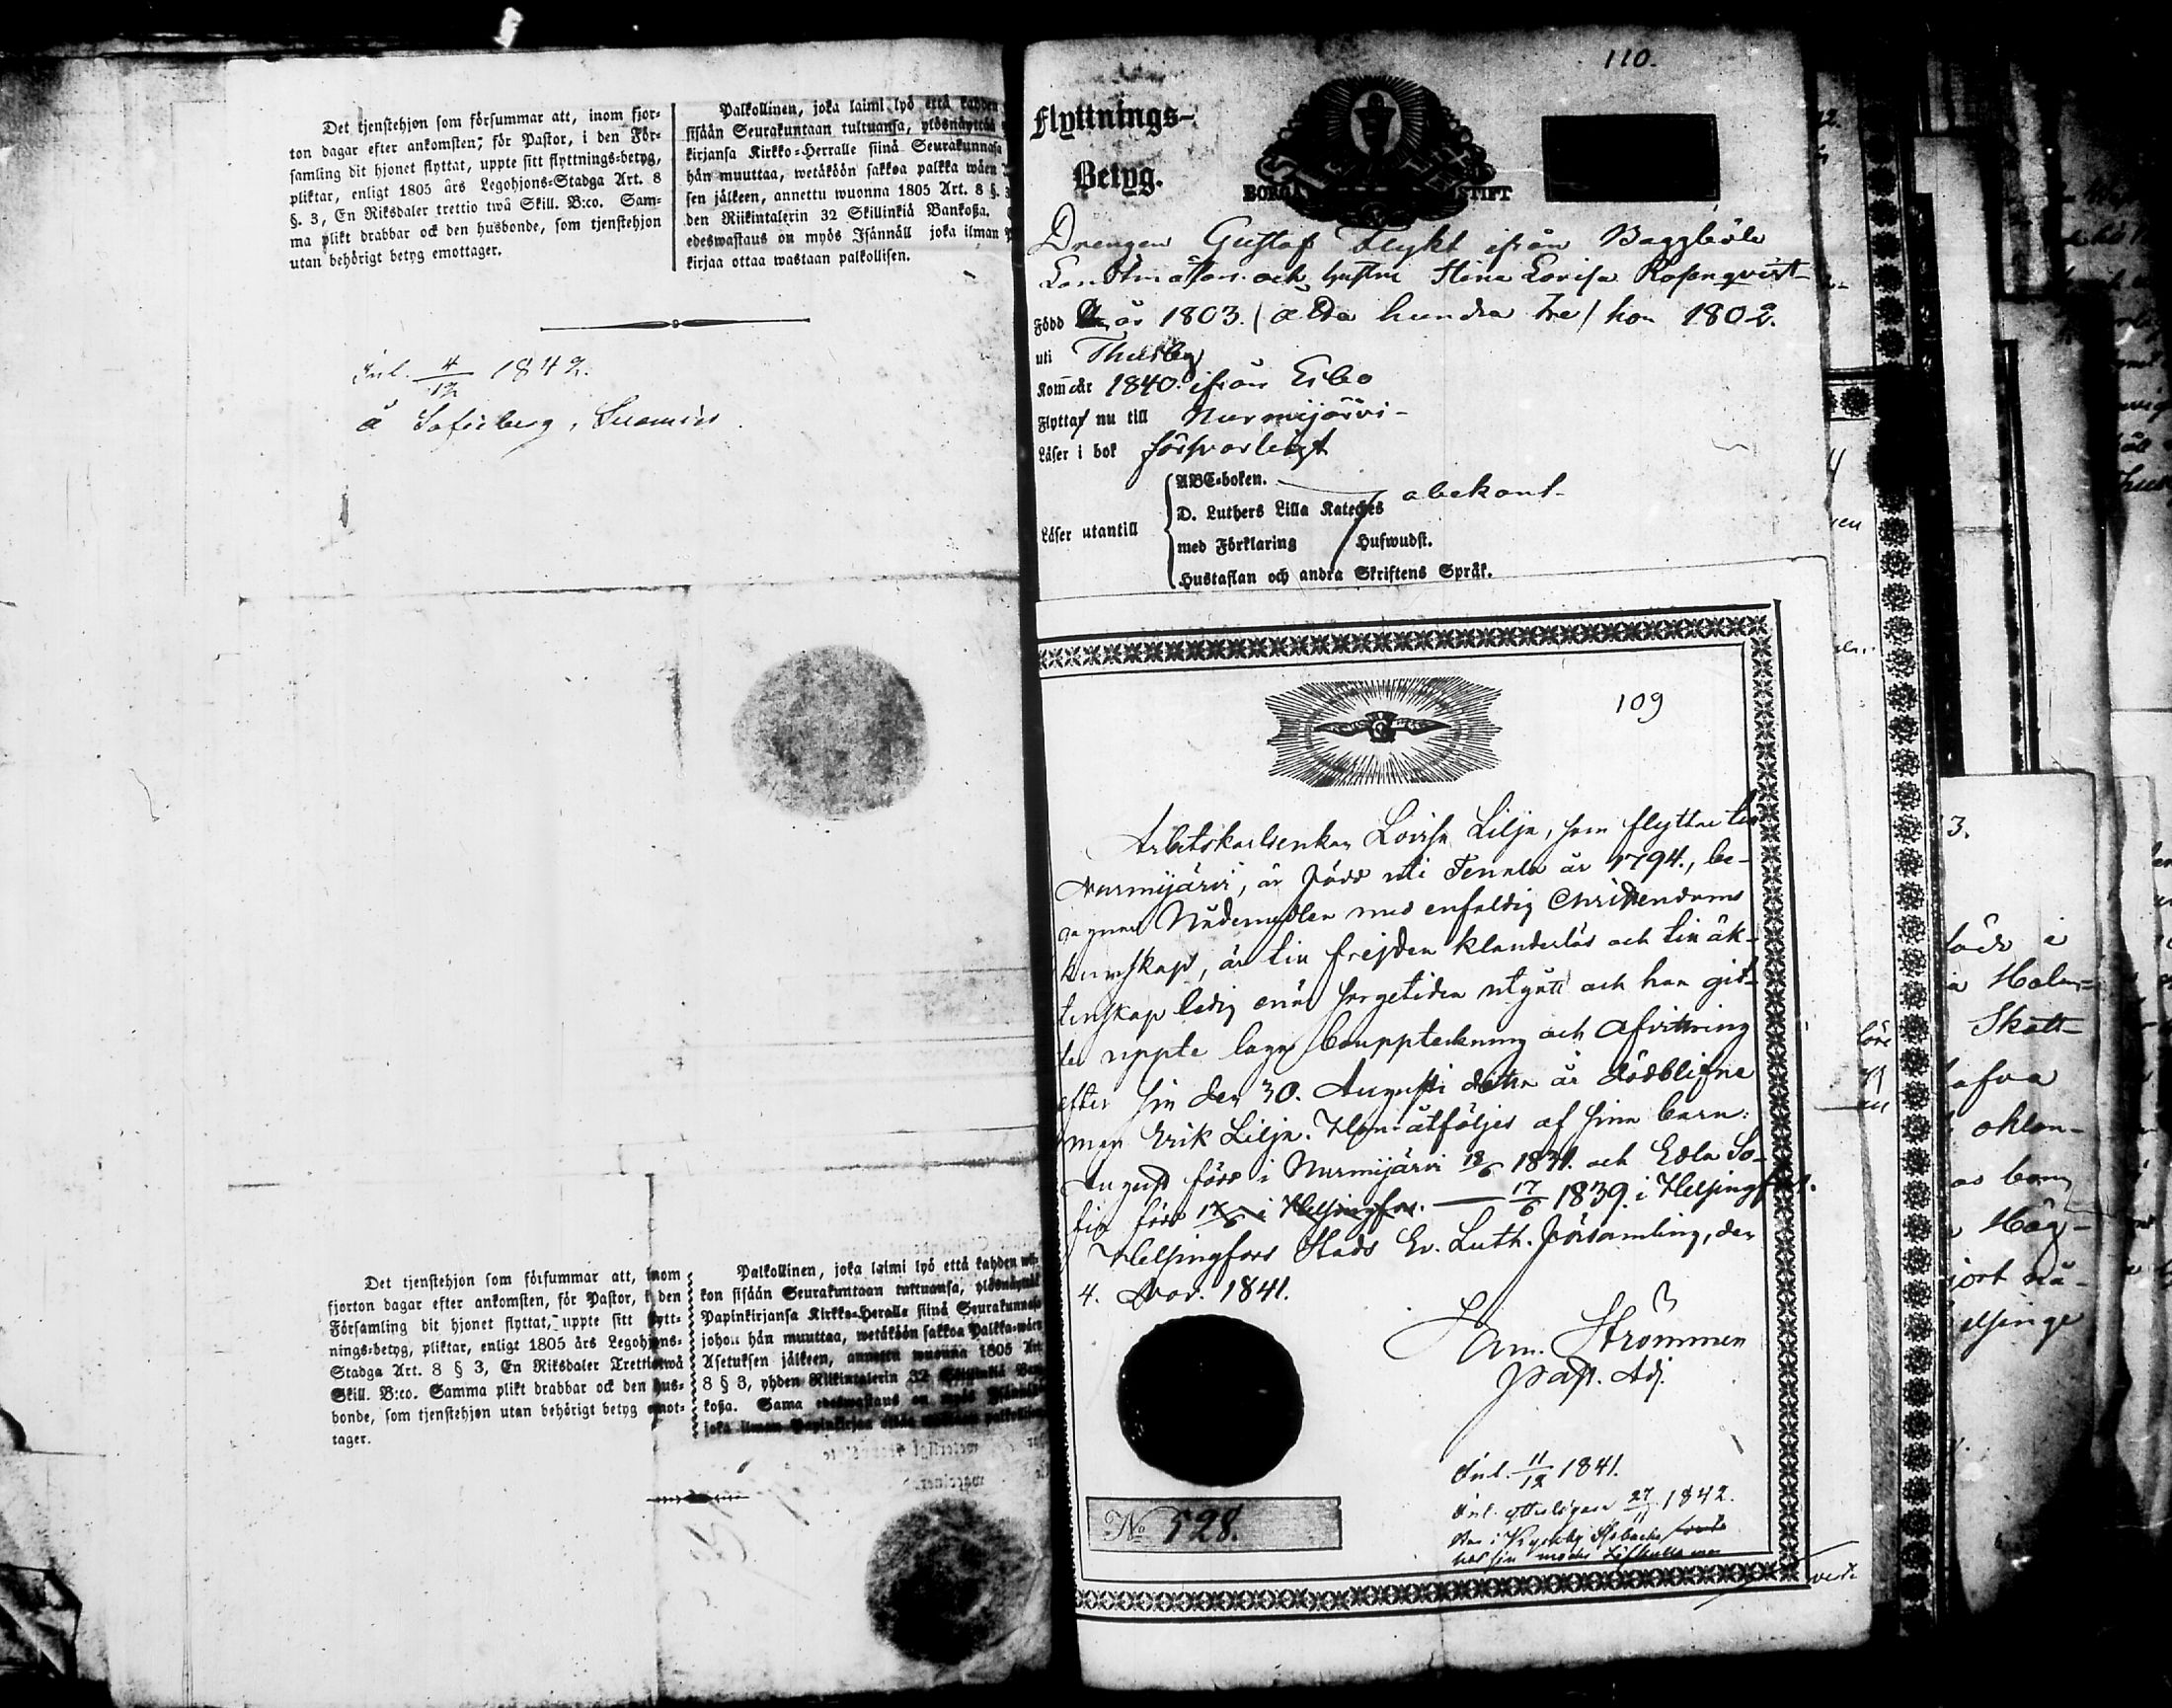 Det tjenstehjon som försummar att, inom fjor-
ton dagar efter ankomsten, för Pastor, i den För-
samling dit hjonet flyttat, uppte sitt flyttnings-betyg,
pliktar, enligt 1805 års Legohjons-Stadga Art. 8
§. 3, En Riksdaler trettio twå Skill. B:co. Sam-
ma plikt drabbar ock den husbonde, som tjenstehjon
utan behörigt betyg emottager.
Palkollinen, joka laimi lyö että kahden
sisään Seurakuntaan tultuansa, ylösnäyttää
kirjansa Kirkko-Herralle siinä Seurakunnasa
hän muuttaa, wetäköön sakkoa palkka wäen
sen jälkeen, annettu wuonna 1805 Art. 8 §. 3
den Riikintalerin 32 Skillinkiä Bankoßa.
edeswastaus on myös Isännäll joka ilman
kirjaa ottaa wastaan palkollisen.
Inl. 4/12 1842.
å Soferberg,
Det tjenstehjon som försummar att, inom
fjorton dagar efter ankomsten, för Pastor, i den
Församling dit hjonet flyttat, uppte sitt flytt-
nings-betyg, pliktar, enligt 1805 års Legohjons-
Stadga Art. 8 § 3, En Riksdaler Trettiotwå
Skill. B:co. Samma plikt drabbar ock den hus-
bonde, som tjenstehjon utan behörigt betyg emot-
tager.
Palkollinen, joka laimi lyö että kahden wii-
kon sisään Seurakuntaan tultuansa, ylösnäyttää
Papinkirjansa Kirkko-Heralle siinä Seurakunnasa
johon hän muuttaa, wetäköön sakkoa Palkka-wäen
Asetuksen jälkeen, annettu wuonna 1805 Art
8 § 3, yhden Riikintalerin 32 Skillinkiä Ban-
koßa. Sama edeswastaus on myös Isännäll
joka ilman Papinkirjaa ottaa wastaan palkollisen
110.
Flyttnings-
Betyg.
BORGÅ STIFT
Drengen Gustaf Flykt ifrån Baggböle
och hustru Stina Lovisa Rosenqvist
Född år 1803. (adertahundra tre) hon 1802.
uti Thusby
Kom år 1840. ifrån Esbo
Flyttaf nu till Nurmijärvi-
Läser i bok försvarligt
Läser utantill
ABC-boken.
D. Luthers Lilla Kateches
abekant-
med Förklaring Hufwudst.
Hustaflan och andra Skriftens Språk.
109
Arbetskarlsenkan Lovisa Lilja, som flyttar till
Nurmijärvi, är född uti Tenala år 1794., be-
gagnar Nådemedlen med enfaldig Christendoms
kunskap, är till frejden klanderlös och till äk-
tenskap ledig enär sorgetiden utgått och hon git-
ter uppte laga bouppteckning och afvittring
efter sin den 30. Augusti detta år dödblifne
man Erik Lilja. Hon åtföljes af sina barn:
August född i Nurmijärvi 18/6 1831. och Edla So-
fia född 17/6 i Helsingfors. — 17/6 1839. i Helsingfors.
Helsingfors Stads Ev. Luth. Församling, den
4. Nov. 1841.
Sam. Strömmen
Past. Adj.
No 528.
Inl. 11/12 1841.
Inl. ytterligare 27/11 1842.
hos sin moder